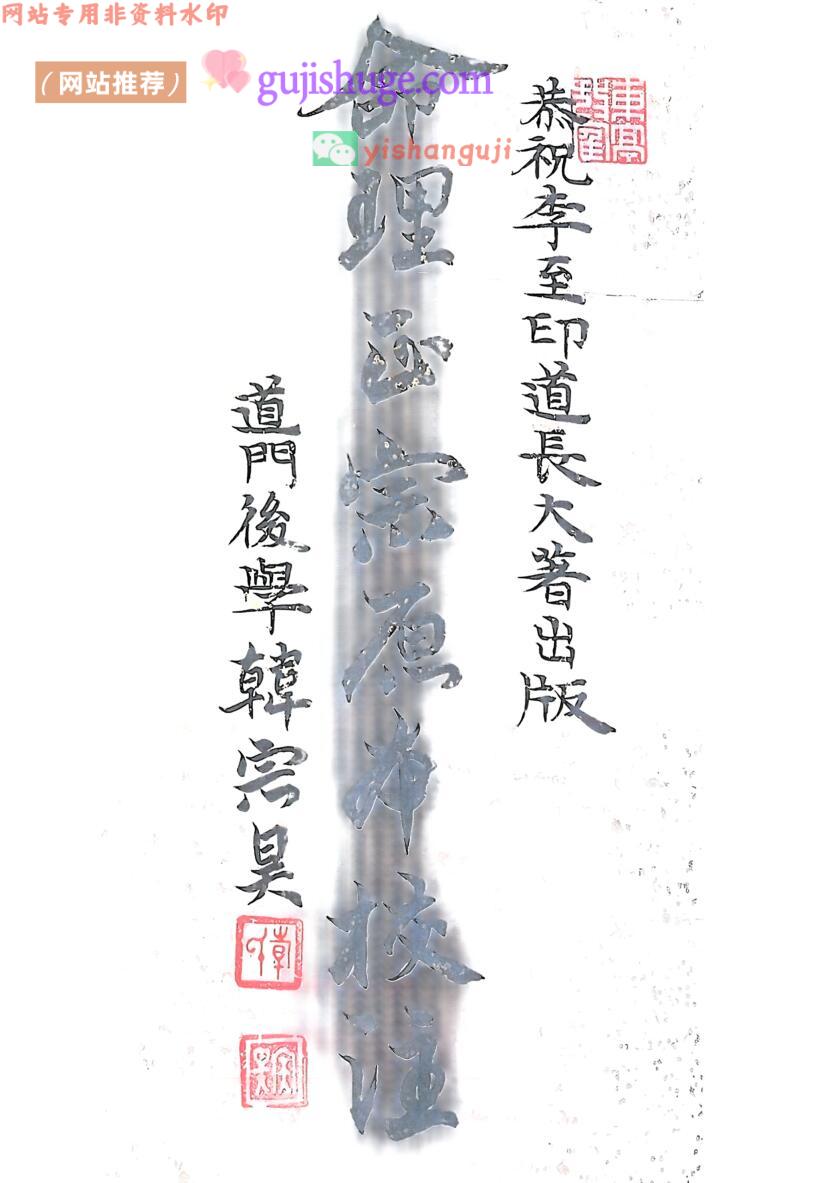 网站专用非资料水印
（网站推荐）
gujishuge.com
yishanguji
恭祝李至印道長大著出版
命理正宗原本校注
道門後學韓宗昊